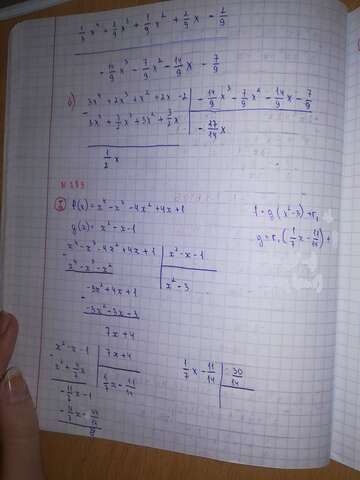 1/3 x⁴ + 2/9 x³ + 1/9 x² + 2/9 x - 2/9
- 14/9 x³ - 7/9 x² - 14/9 x - 7/9
3x⁴ + 2x³ + x² + 2x - 2
- 14/9 x³ - 7/9 x² - 14/9 x - 7/9
3x⁴ + 3/2 x³ + 3x² + 3/2 x
- 27/14 x
1/2 x
f(x) = x⁴ - x³ - 4x² + 4x + 1
g(x) = x² - x - 1
x⁴ - x³ - 4x² + 4x + 1
x² - x - 1
x⁴ - x³ - x²
x² - 3
-3x² + 4x + 1
-3x² - 3x - 3
7x + 4
f = g(x² - 3) + r₁
g = r₁(1/7 x - 11/14) +
x² - x - 1
7x + 4
x² + 4/7 x
1/7 x - 11/14
- 11/7 x - 1
1/7 x - 11/14
30/14